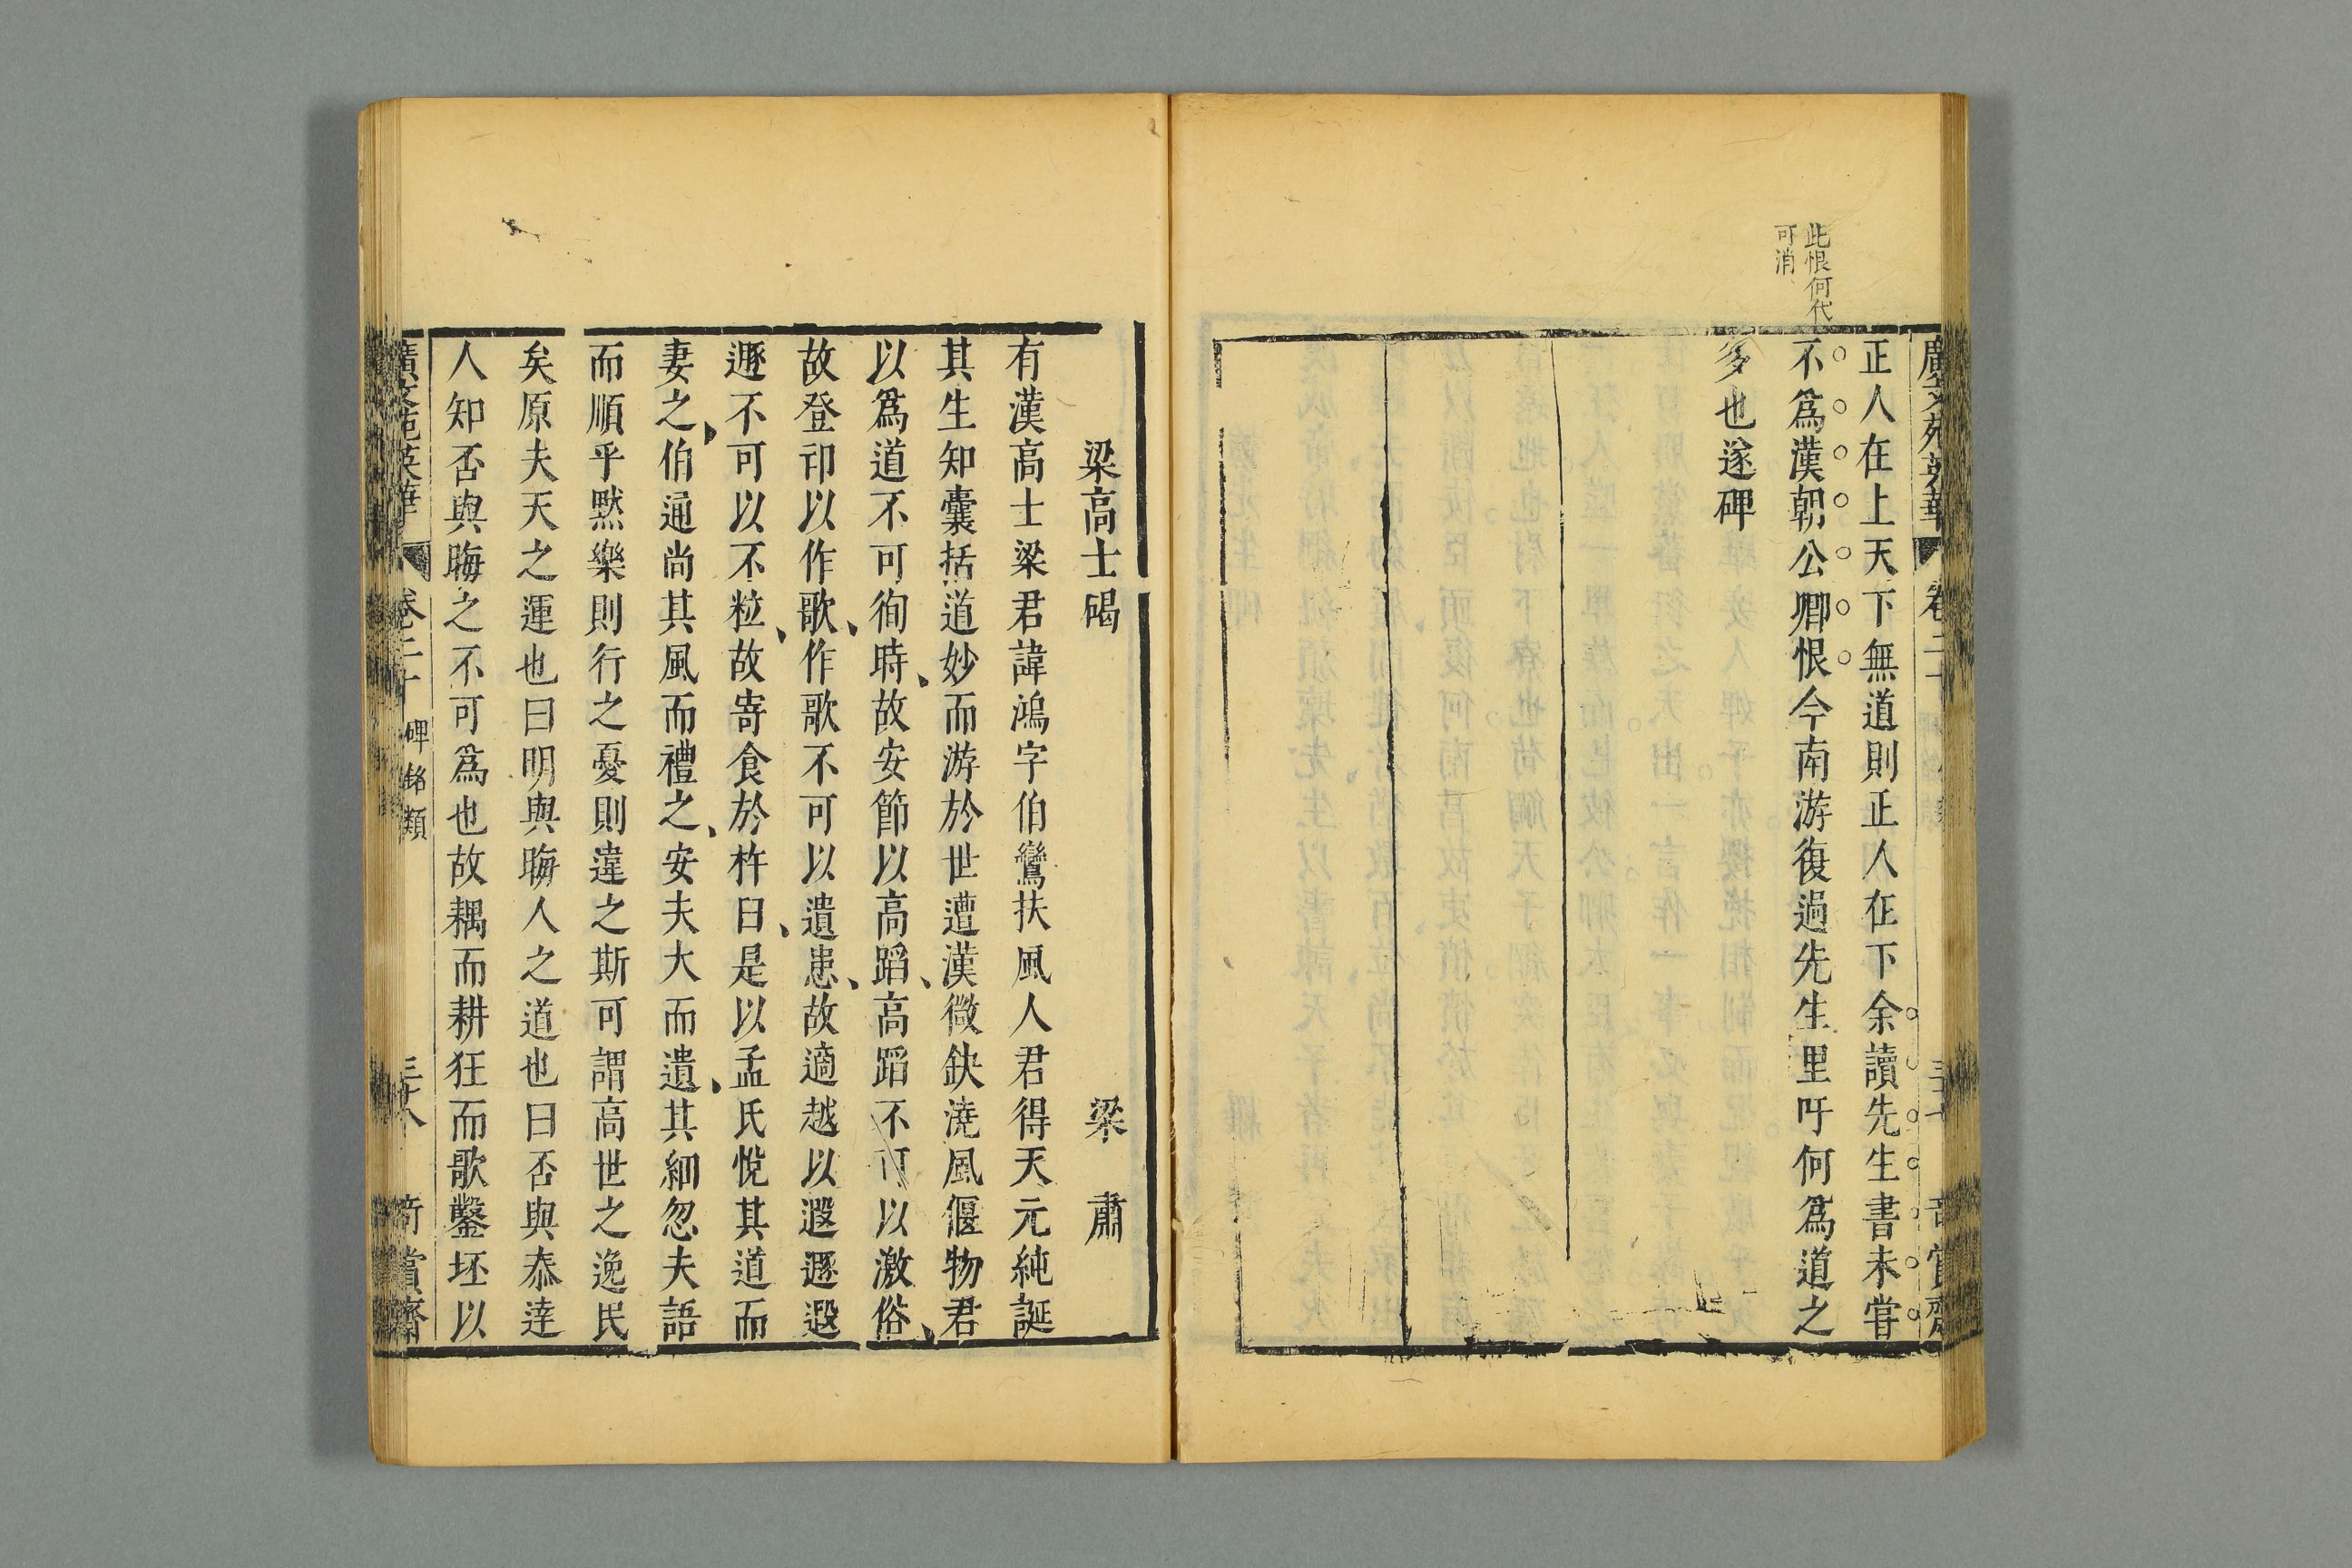 此恨何代
可消
正人在上天下無道則正人在下余讀先生書未嘗
不爲漢朝公卿恨今南游復過先生里吁何爲道之
多也遂碑
梁高士碣 梁肅
有漢高士梁君諱鴻字伯鸞扶風人君得天元純誕
其生知囊括道妙而游於世遭漢微缺澆風偃物君
以爲道不可徇時故安節以高蹈高蹈不可以激俗
故登卭以作歌作歌不可以遺患故適越以遐遯遐
遯不可以不粒故寄食於杵臼是以孟氏悅其道而
妻之伯通尚其風而禮之安夫大而遺其細忽夫語
而順乎黙樂則行之憂則違之斯可謂高世之逸民
矣原夫天之運也曰明與晦人之道也曰否與泰達
人知否與晦之不可爲也故耦而耕狂而歌鑿坯以
廣文苑英華 卷二十 碑銘類 三十八 奇賞齋